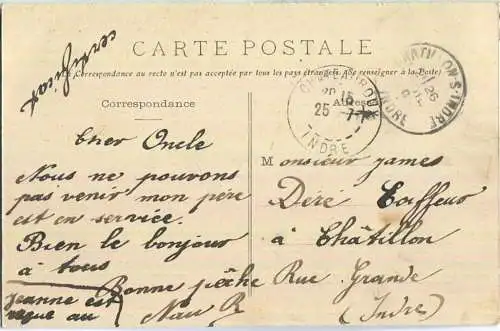 CARTE POSTALE
La Correspondance au recto n'est pas acceptée par tous les pays étrangers (Se renseigner à la Poste)
Correspondance
Adresse
CHATEAUROUX
25 - 7
INDRE
CHATILLON-S-INDRE
INDRE
Cher Oncle
Nous ne pouvons
pas venir mon père
est en service.
Bien le bonjour
à tous
Bonne pêche
Jeanne est
reçue au
Monsieur James
Déré Coiffeur
à Châtillon
Rue Grande
(Indre)